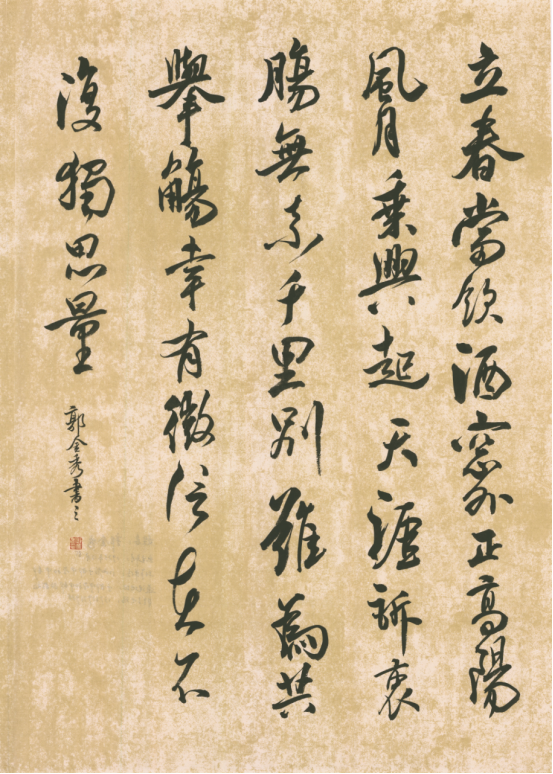 立春當飲酒窗外正高陽
風月乘興起天涯訴衷
腸無奈千里別難為共
舉觴幸有微信在不
復獨思量
郭金秀書之